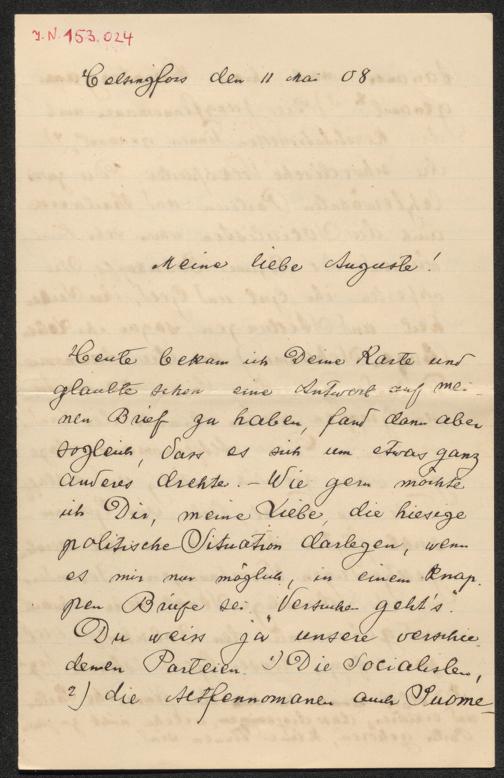 J.N. 153.024
Helsingfors den 11 Mai 08
Meine liebe Auguste!
Heute bekam ich Deine Karte und
glaubte schon eine Antwort auf mei-
nen Brief zu haben, fand dann aber
sogleich, dass es sich um etwas ganz
anderes drehte. – Wie gern möchte
ich Dir, meine Liebe, die hiesige
politische Situation darlegen, wenn
es mir nur möglich, in einem knap-
pen Briefe sei. Versuchen geht's.
Du weisst ja unsere verschie
denen Parteien. 1) Die Socialisten,
2) die Altfennomanen auch Suome-